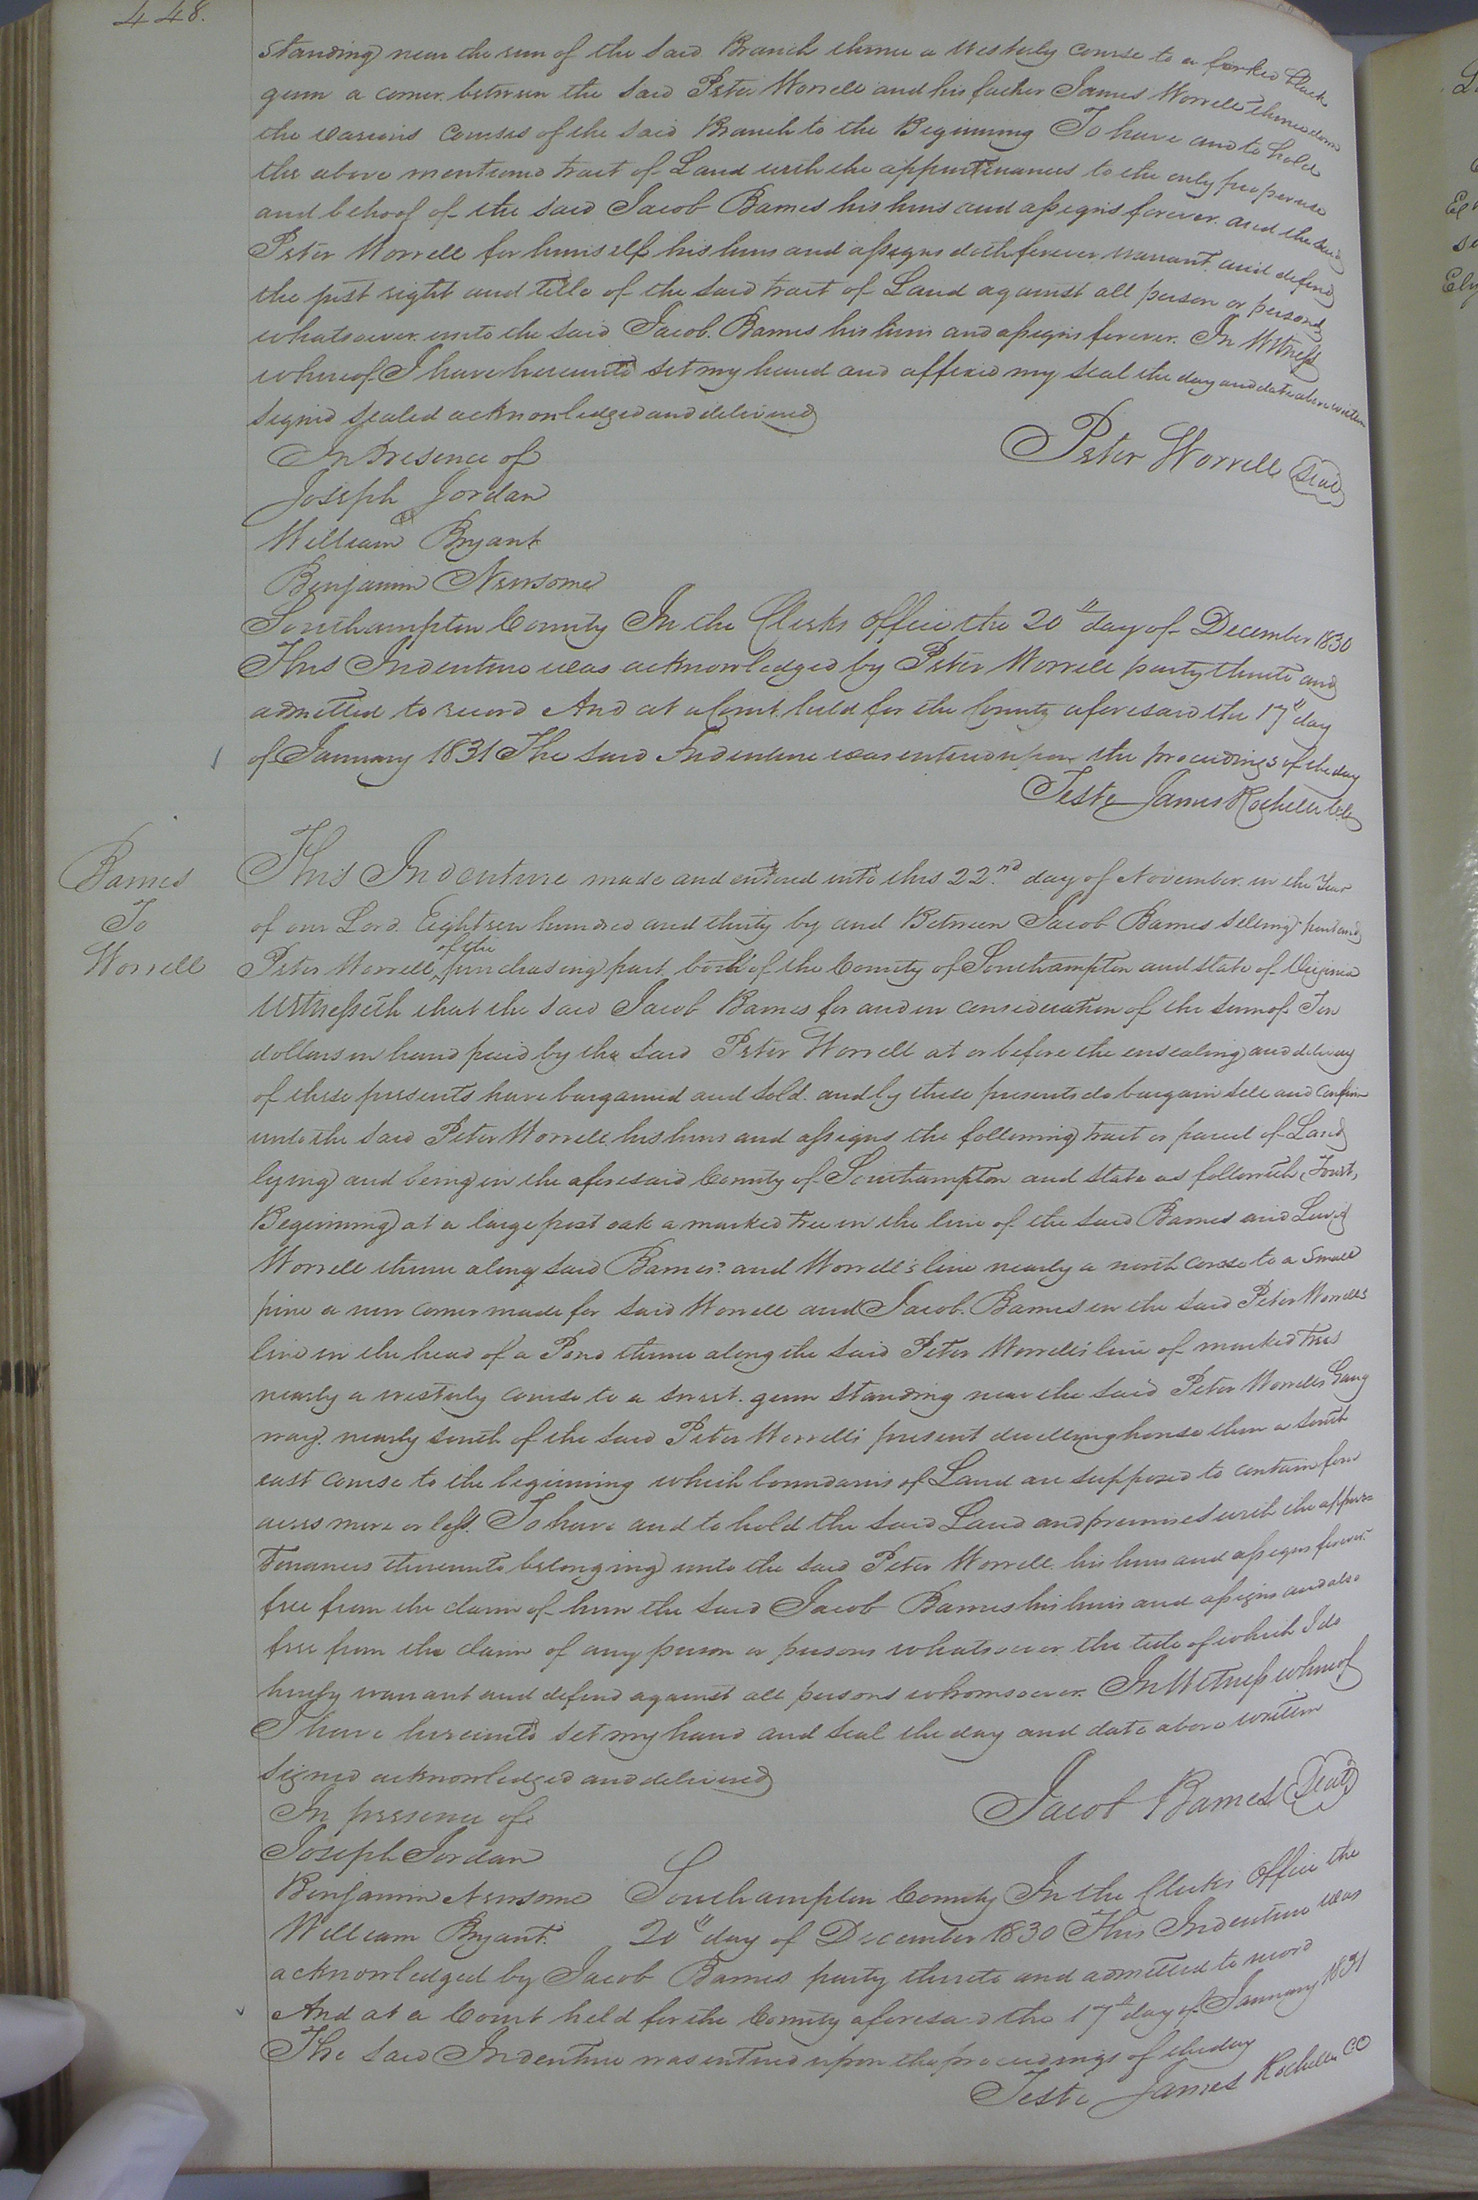 448.
standing near the run of the said Branch thence a westerly course to a forked black
gum a corner between the said Peter Worrell and his father James Worrell thence down
the various courses of the said Branch to the Beginning To have and to hold
the above mentiond tract of Land with the appurtinances to the only proper use
and behoof of the said Jacob Barnes his heirs and assigns forever and the said
Peter Worrell for himself his heirs and assigns doth forever warrant and defend
the just right and title of the said tract of Land against all person or persons
whatsoever unto the said Jacob Barnes his heirs and assigns forever. In Witness
whereof I have hereunto set my hand and affixed my seal the day and date above written
signed sealed acknowledged and delivered
In Presence of
Peter Worrell Seal
Joseph Jordan
William Bryant
Benjamin Newsome
Southampton County In the Clerks office the 20th day of December 1830
This Indenture was acknowledged by Peter Worrell party thereto and
admitted to record And at a Court held for the County aforesaid the 17th day
of January 1831 The said Indenture was entered upon the proceedings of the day
Teste James Rochelle
Barnes
To
Worrell
This Indenture made and entered into this 22nd day of November in the Year
of our Lord Eighteen hundred and thirty by and Between Jacob Barnes selling part and
Peter Worrell of the purchasing part both of the County of Southampton and state of Virginia
Witnesseth that the said Jacob Barnes for and in consideration of the sum of Ten
dollars in hand paid by the said Peter Worrell at or before the ensealing and delivery
of these presents have bargained and sold and by these presents do bargain sell and confirm
unto the said Peter Worrell his heirs and assigns the following tract or parcel of Land
lying and being in the aforesaid County of Southampton and state as followeth,
Beginning at a large post oak a marked tree in the line of the said Barnes and
Worrell thence along said Barnes and Worrell's line nearly a north corse to a small
pine a new corner made for said Worrell and Jacob Barnes in the said Peter Worrells
line in the head of a Pond thence along the said Peter Worrell's line of marked trees
nearly a westerly course to a sweet gum standing near the said Peter Worrells Gang
way nearly south of the said Peter Worrell's present dwelling house then a south
east course to the beginning which boundaries of Land are supposed to contain four
acres more or less. To have and to hold the said Land and premises with the appur=
tenances thereunto belonging unto the said Peter Worrell his heirs and assigns forever
free from the claim of him the said Jacob Barnes his heirs and assigns and also
free from the claim of any person or persons whatsoever the title of which I do
hereby warrant and defend against all persons whomsoever. In Witness whereof
I have hereunto set my hand and seal the day and date above written
signed acknowledged and delivered
In presence of
Jacob Barnes Seal
Joseph Jordan
Benjamin Newsome Southampton County In the Clerks Office the
William Bryant. 20th day of December 1830 This Indenture was
acknowledged by Jacob Barnes party thereto and admitted to record
And at a Court held for the County aforesaid the 17th day of January 1831
The said Indenture was entered upon the proceedings of the day
Teste James Rochelle